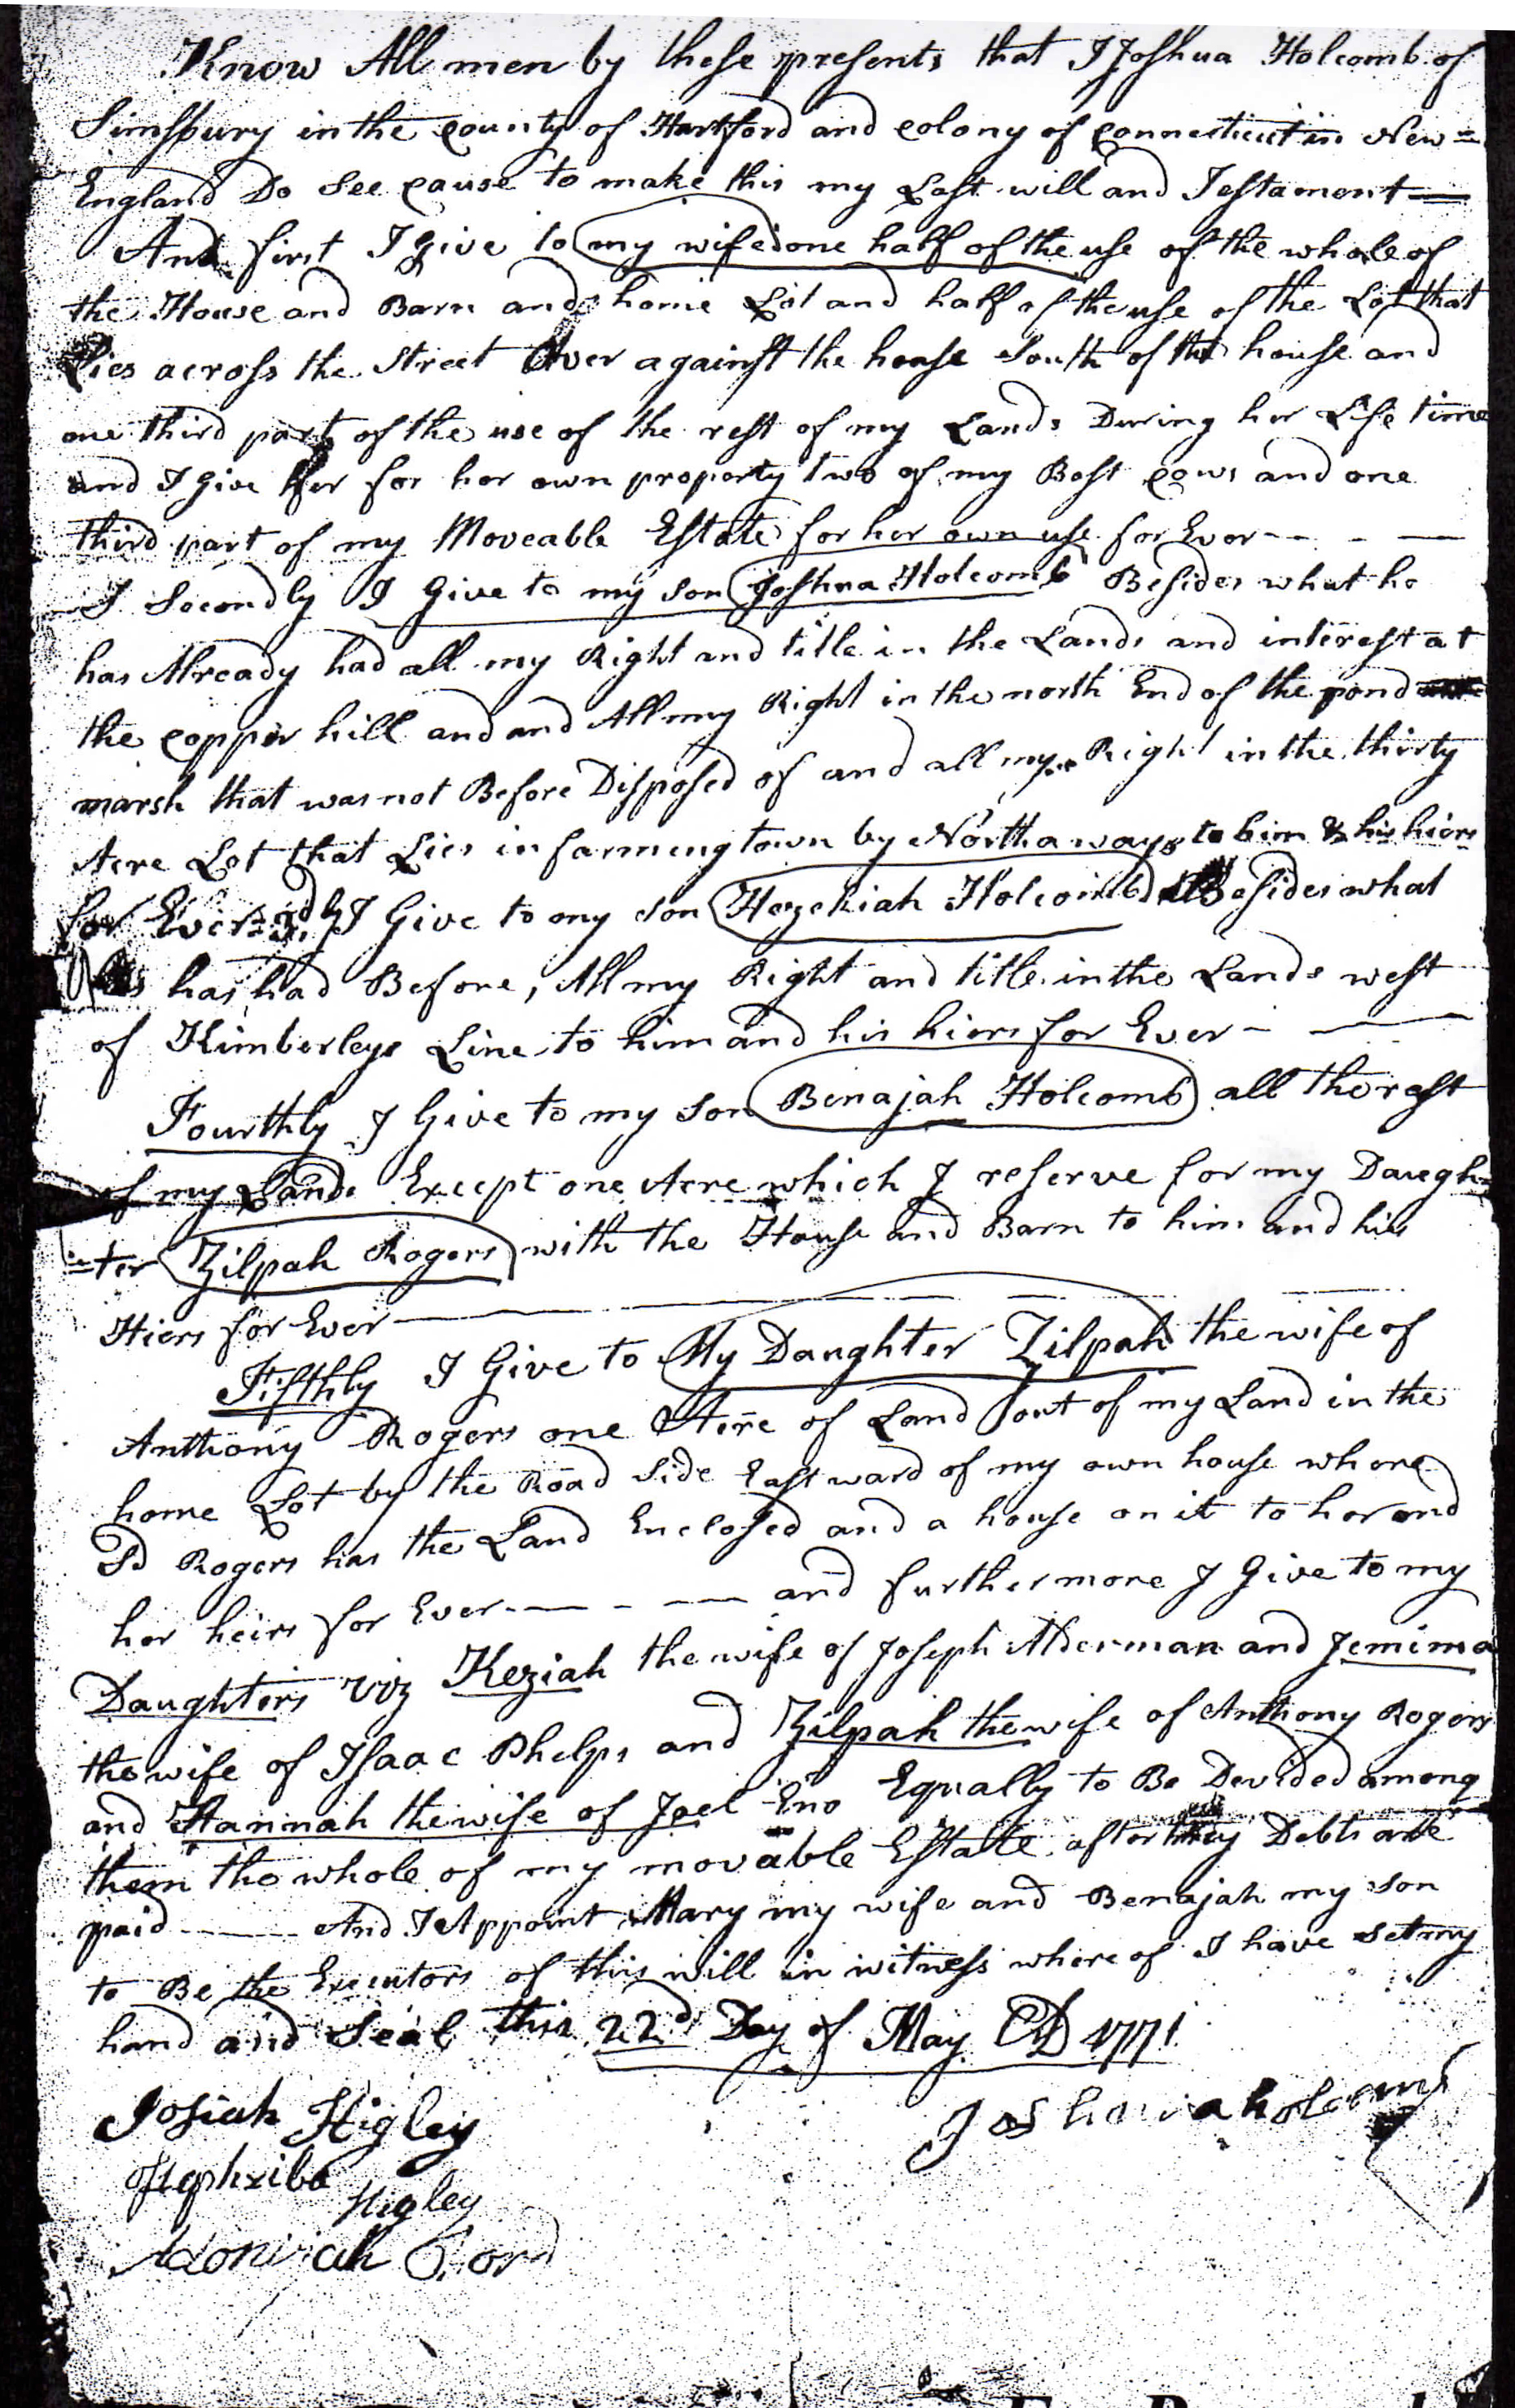 Know All men by these presents that I Joshua Holcomb of
Simsbury in the county of Hartford and colony of connecticut in New =
England Do See cause to make this my Last will and Testament —
And first I Give to my wife one half of the use of the whole of
the House and Barn and home Lot and half of the use of the Lot that
Lies across the Street Over against the house South of the house and
one third part of the use of the rest of my Lands During her Life time
and I Give her for her own property two of my Best cows and one
third part of my Moveable Estate for her own use for Ever - - - —
I Secondly I Give to my son Joshua Holcomb Besides what he
has Already had all my Right and title in the Lands and interest at
the copper hill and and All my Right in the north End of the pond
marsh that was not Before Disposed of and all my Right in the thirty
Acre Lot that Lies in farmengtown by Northaways to him & his hiers
for Ever = 3dly I Give to my son Hezekiah Holcomb Besides what
has had Before, All my Right and title in the Lands west
of Kimberleys Line to him and his hiers for Ever - —
Fourthly I Give to my Son Benajah Holcomb all the rest
of my Lands Except one Acre which I reserve for my Daugh=
=ter Zilpah Rogers with the House and Barn to him and his
Hiers for Ever —
Fifthly I Give to My Daughter Zilpah the wife of
Anthony Rogers one Acre of Land out of my Land in the
home Lot by the Road Side Eastward of my own house where
Sd Rogers has the Land Enclosed and a house on it to her and
her heirs for Ever - — - — and furthermore I Give to my
Daughters viz Keziah the wife of Joseph Alderman and Jemima
the wife of Isaac Phelps and Zilpah the wife of Anthony Rogers
and Hannah the wife of Joel Eno Equally to Be Devided among
them the whole of my movable Estate after my Debts are
paid — And I Appoint Mary my wife and Benajah my son
to Be the Executors of this will in witness where of I have Set my
hand and Seal this 22d Day of May AD 1771
Josiah Higley
Joshua holcomb
Hephziba Higley